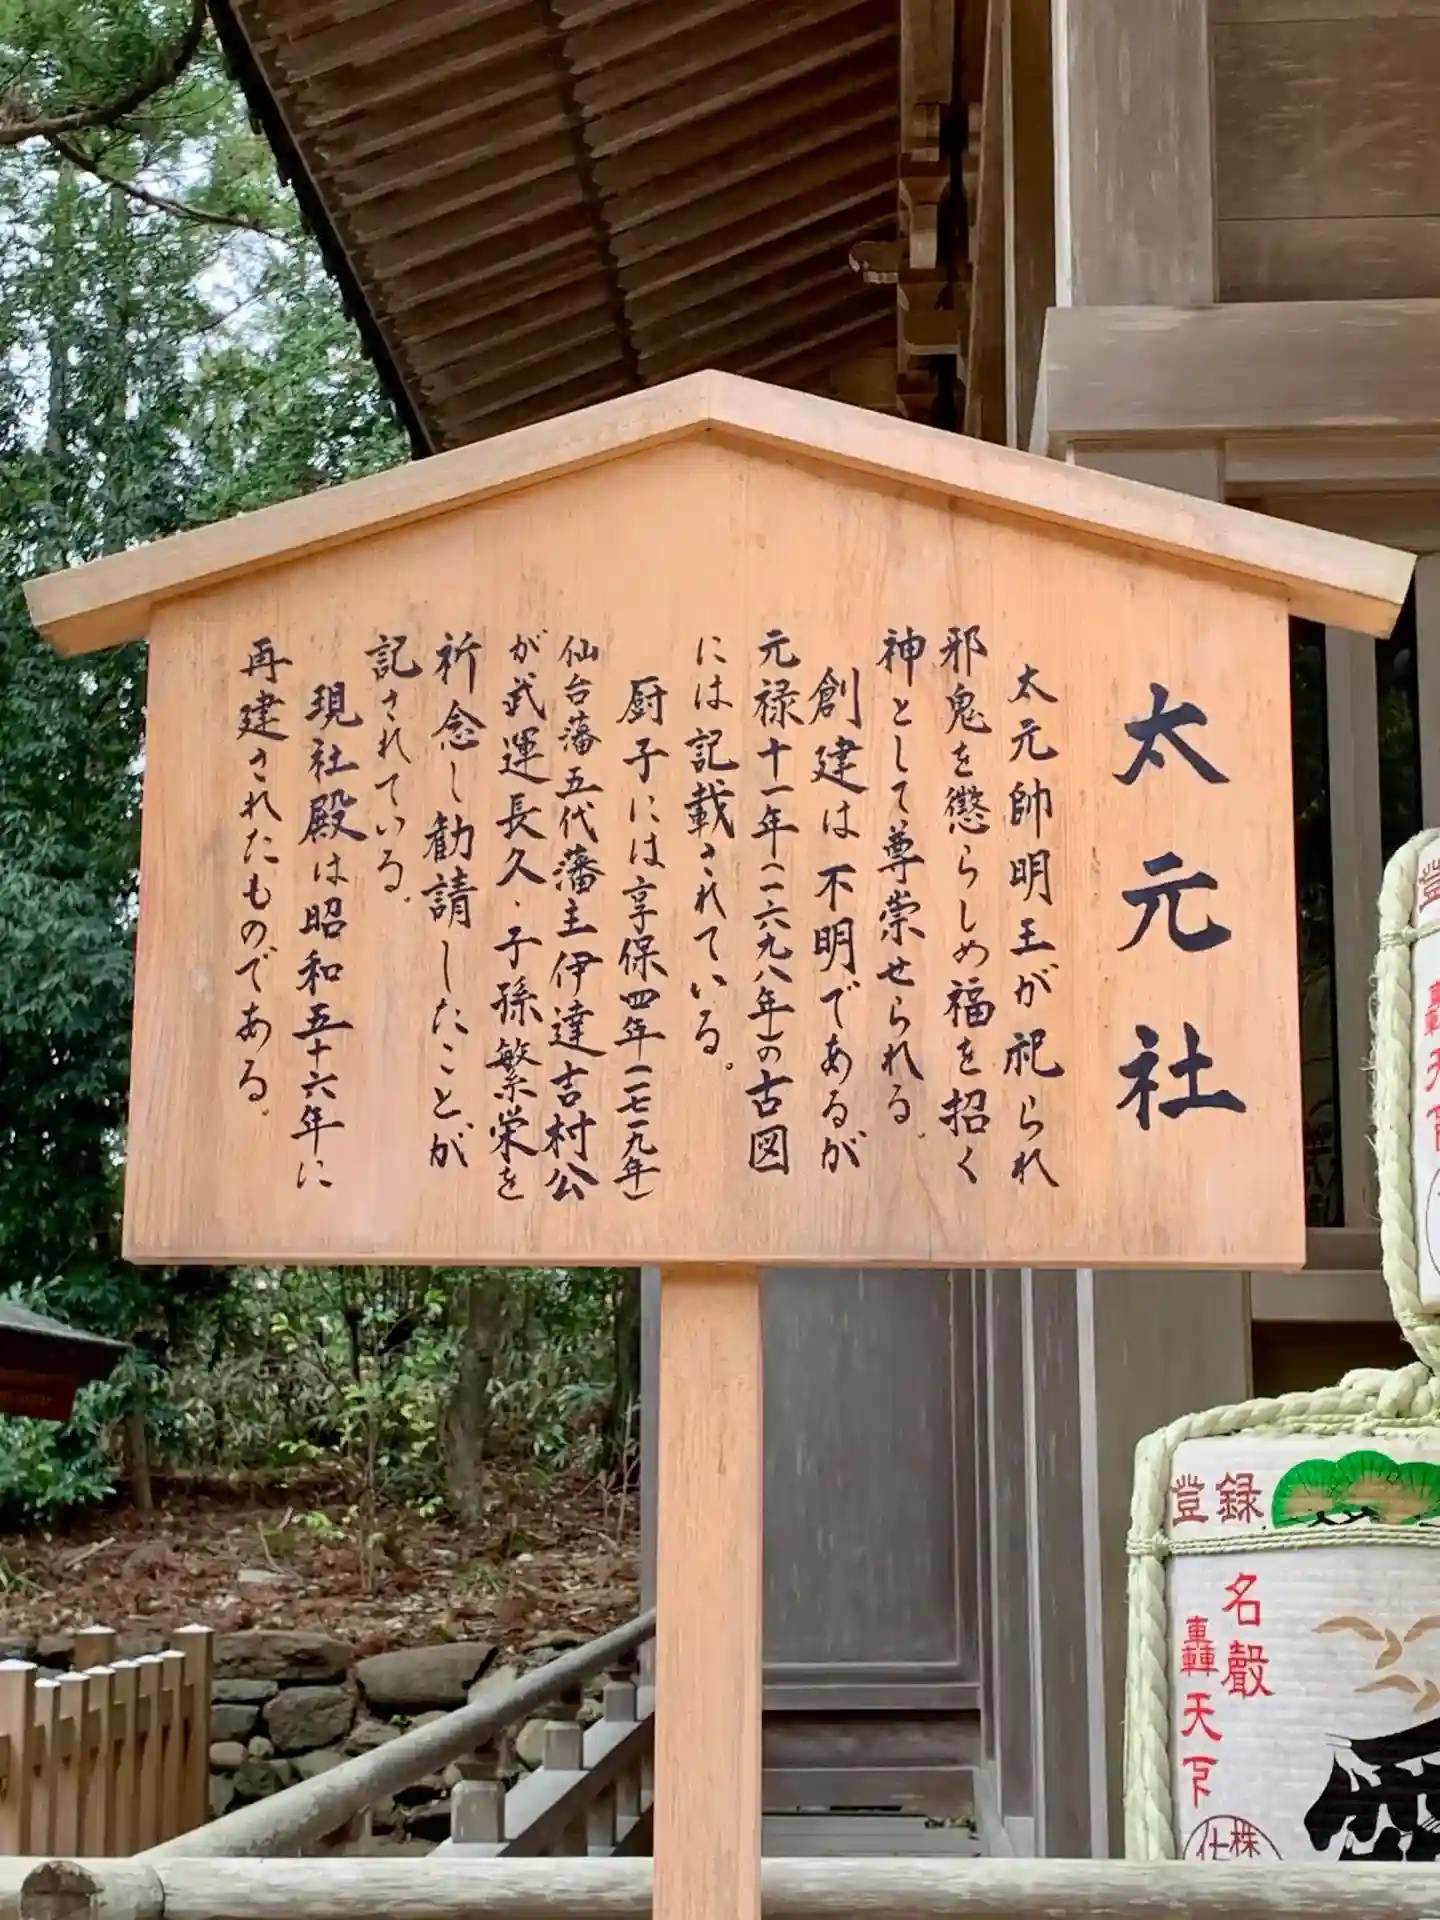 太元社
太元帥明王が祀られ
邪鬼を懲らしめ福を招く
神として尊崇せられる。
創建は不明であるが
元禄十一年(一六九八年)の古図
には記載されている。
厨子には享保四年(一七一九年)
仙台藩五代藩主伊達吉村公
が武運長久・子孫繁栄を
祈念し勧請したことが
記されている。
現社殿は昭和五十六年に
再建されたものである。
登録
名聲
轟天下
株
仕
登
轟天下